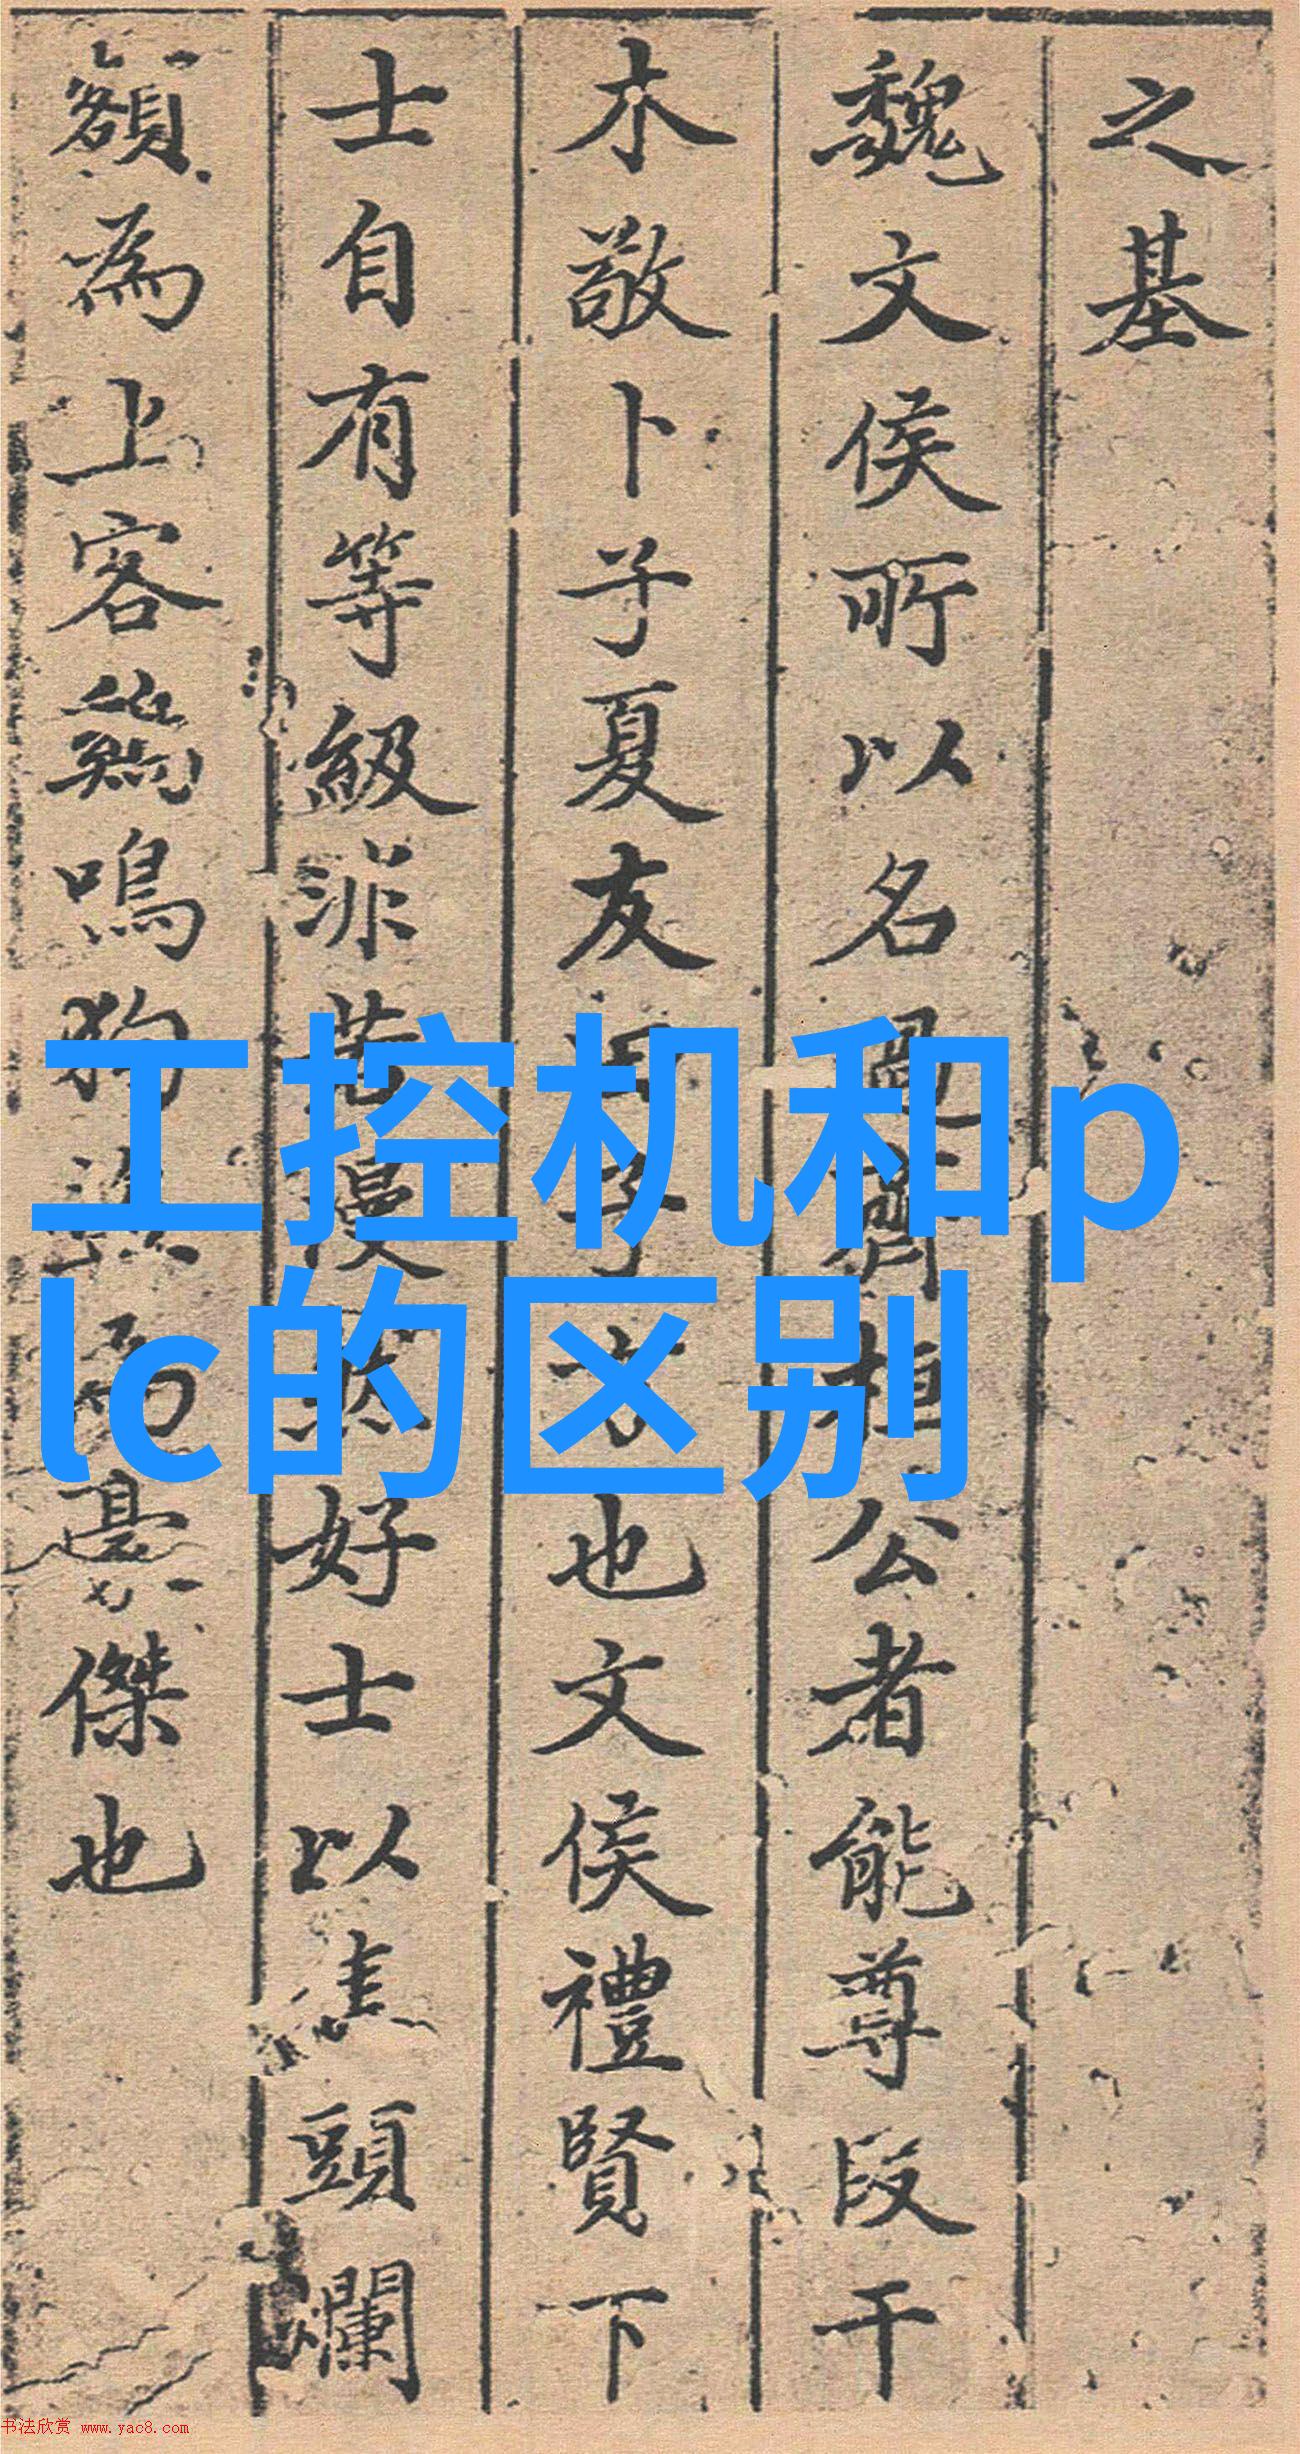 之基
魏文侯所以名過齊桓公者能尊段干
木敬卜子夏友田子方也文侯禮賢下
士自有等級非若然好士以焦頭爛
額為上客鷄鳴狗盜為豪傑也
工控机和p
lc的区别
书法欣赏 www.yac8.com